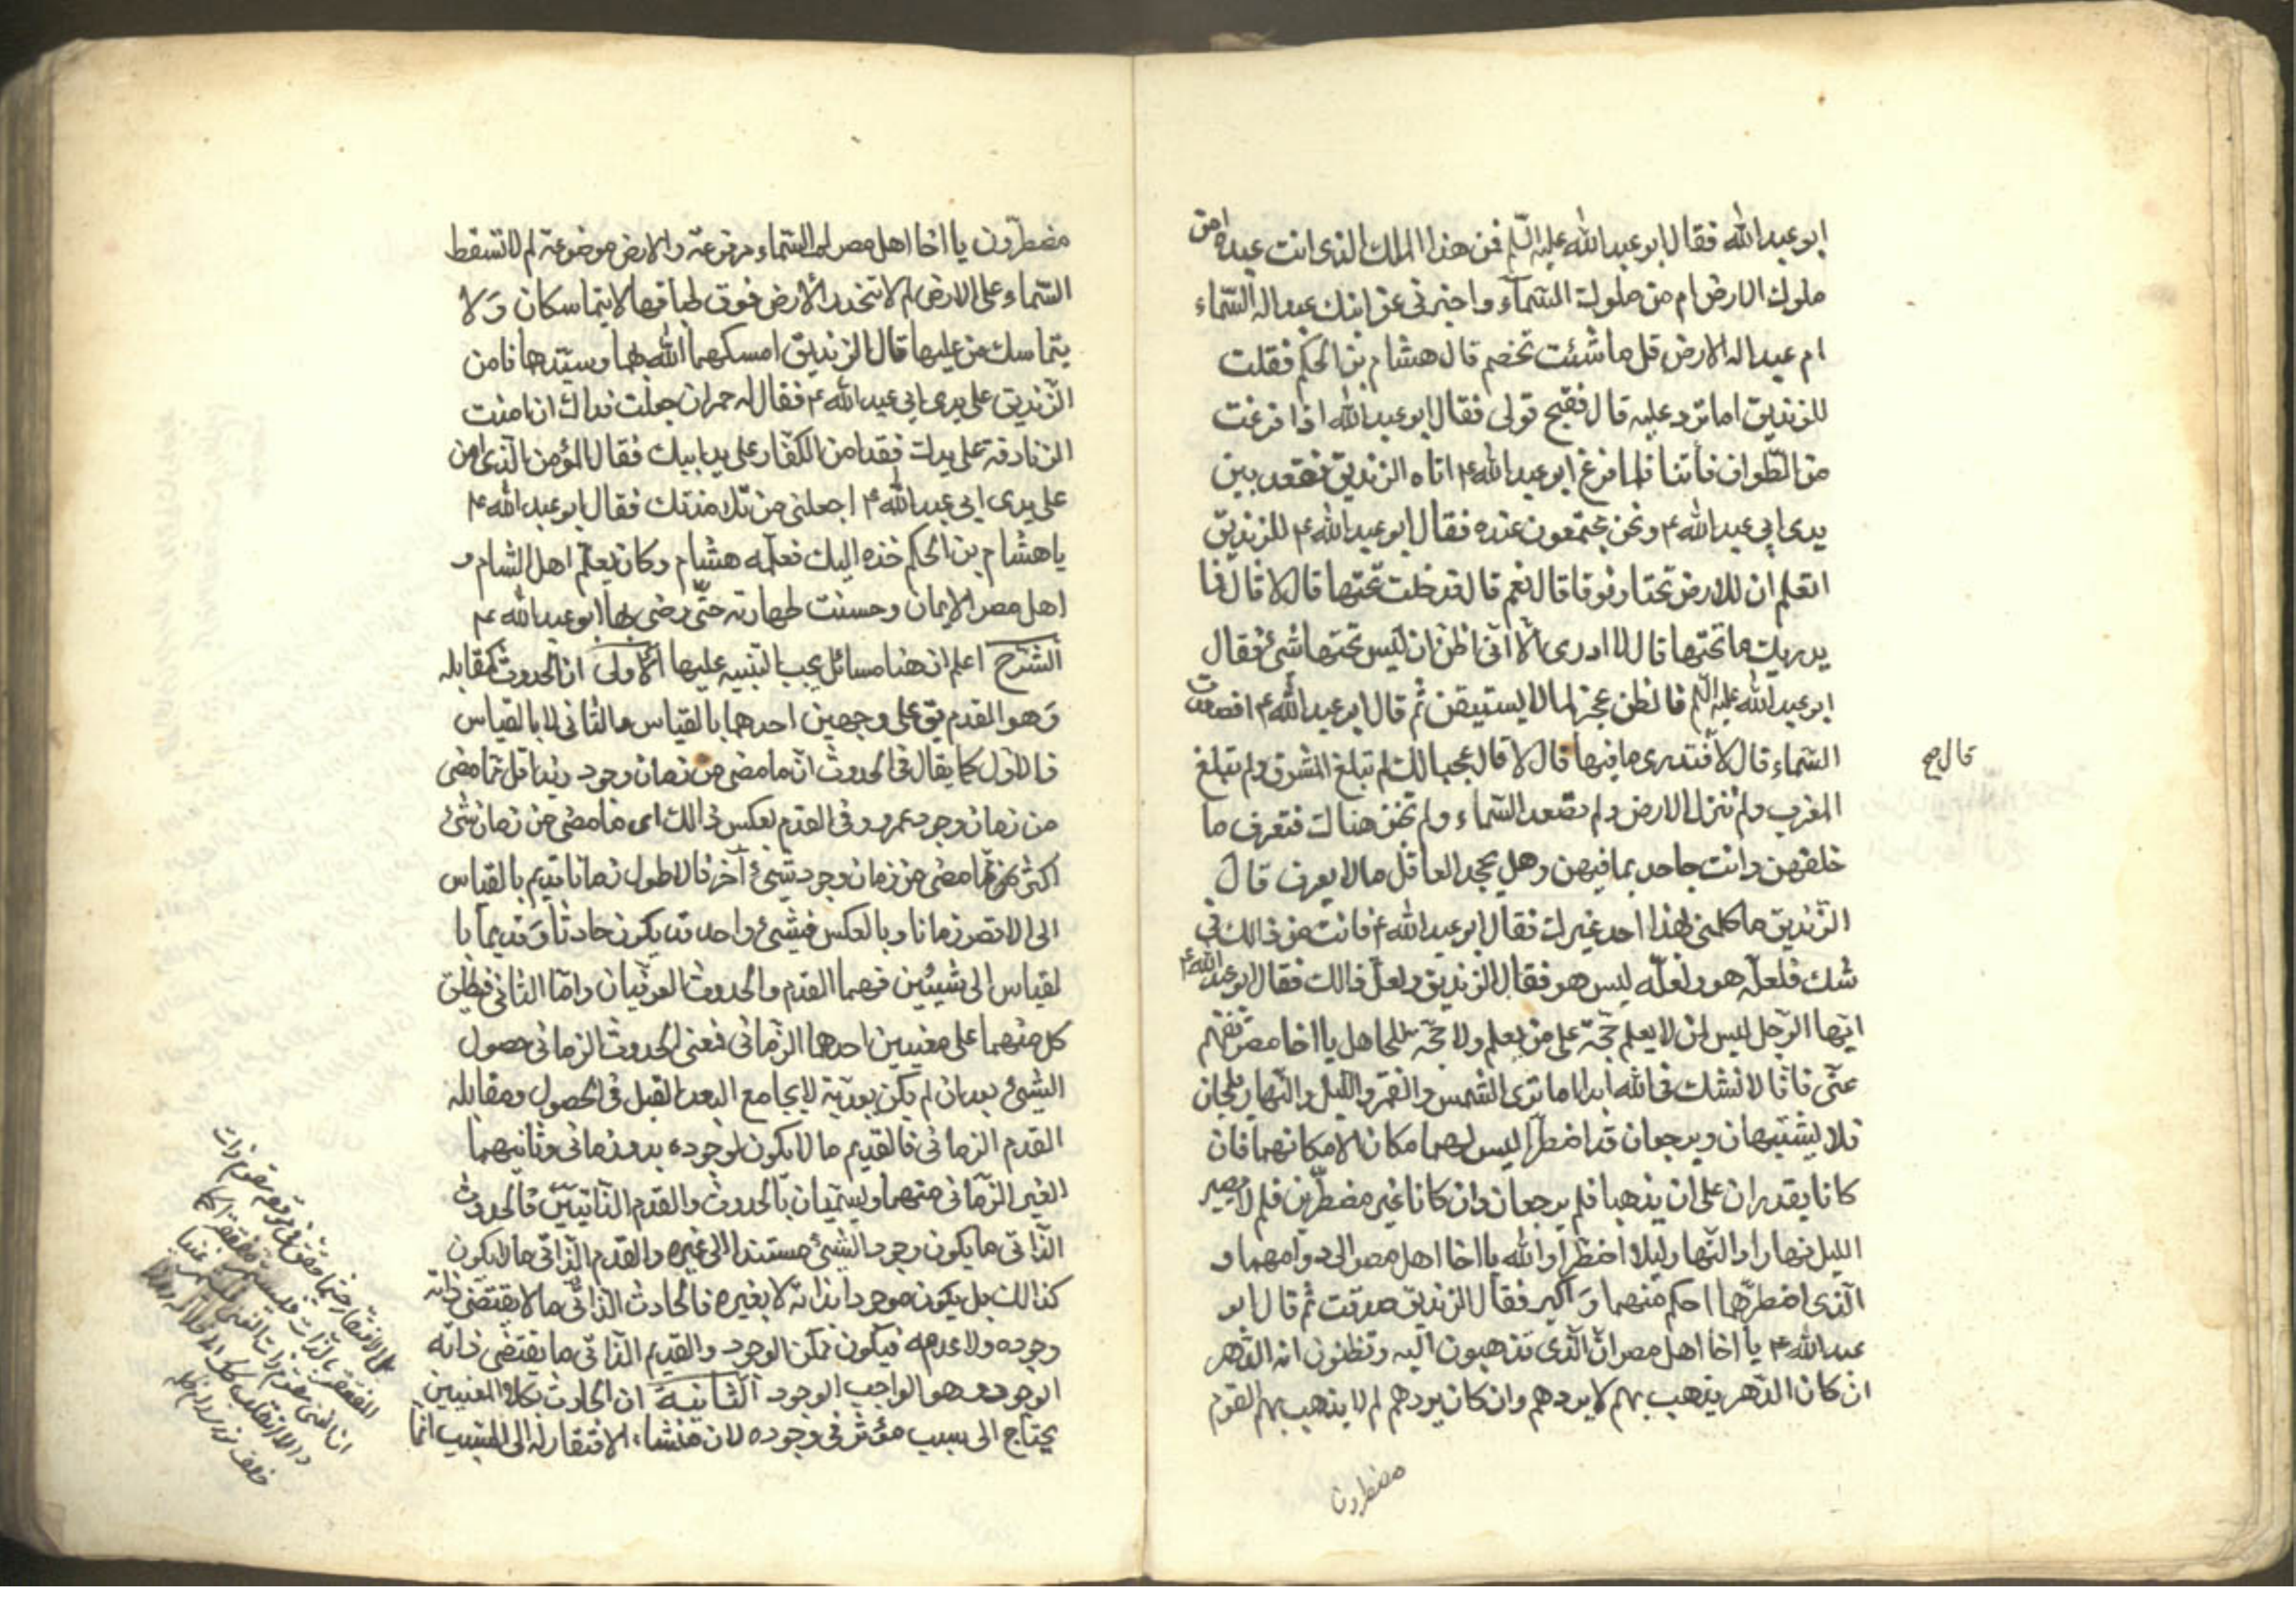 ابو عبد الله فقال ابو عبد الله عليه السلم فمن هذا الملك الذي انت عبده امن
ملوك الارض ام من ملوك السماء واخبرني عن ابنك عبد اله السماء
ام عبد اله الارض قل ما شئت تخصم قال هشام بن الحكم فقلت
للزنديق اما ترد عليه قال فقبح قولى فقال ابو عبد الله اذا فرغت
من الطواف فأتنا فلما فرغ ابو عبد الله ع اتاه الزنديق فقعد بين
يدى ابي عبد الله ع ونحن مجتمعون عنده فقال ابو عبد الله ع للزنديق
اتعلم ان للارض تحتا وفوقا قال نعم قال فدخلت تحتها قال لا قال فما
يدريك ما تحتها قال لا ادرى الا انى اظن ان ليس تحتها شئ فقال
ابو عبد الله عليه السلم فالظن عجز لما لا يستيقن ثم قال ابو عبد الله ع افصعدت
السماء قال لا فتدرى ما فيها قال لا قال عجبا لك لم تبلغ المشرق ولم تبلغ
قال صح
المغرب ولم تنزل الارض ولم تصعد السماء ولم تجز هناك فتعرف ما
خلفهن وانت جاحد بما فيهن وهل يجحد العاقل ما لا يعرف قال
الزنديق ما كلمنى بهذا احد غيرك فقال ابو عبد الله ع فانت من ذالك في
شك فلعله هو ولعله ليس هو فقال الزنديق ولعل ذالك فقال ابو عبد الله ع
ايها الرجل ليس لمن لا يعلم حجة على من يعلم ولا حجة للجاهل يا اخا مصر تفهم
عنى فانا لا نشك فى الله ابدا اما ترى الشمس والقمر والليل والنهار يلجان
فلا يشتبهان ويرجعان قد اضطرا ليس لهما مكان الا مكانهما فان
كانا يقدران على ان يذهبا فلم يرجعان وان كانا غير مضطرين فلم لا يصير
الليل نهارا والنهار ليلا اضطرا والله يا اخا اهل مصر الى دوامهما و
الذى اضطرهما احكم منهما واكبر فقال الزنديق صدقت ثم قال ابو
عبد الله ع يا اخا اهل مصر ان الذى تذهبون اليه وتظنون انه الدهر
ان كان الدهر يذهب بهم لا يردهم وان كان يردهم لم لا يذهب بهم القوم
مضطرون
مضطرون يا اخا اهل مصر لم السماء مرفوعة والارض موضوعة لم لا تسقط
السماء على الارض لم لا تنحدر الارض فوق طباقها لا يتماسكان ولا
يتماسك من عليها قال الزنديق امسكهما الله ربهما وسيدهما فامن
الزنديق على يدى ابي عبد الله ع فقال له حمران جعلت فداك ان امنت
الزنادقة على يدك فقد امن الكفار على يد ابيك فقال المؤمن الذى امن
على يدى ابي عبد الله ع اجعلنى من تلامذتك فقال ابو عبد الله ع
يا هشام بن الحكم خذه اليك فعلمه هشام وكان يعلم اهل الشام و
اهل مصر الايمان وحسنت طهارته حتى رضى بها ابو عبد الله ع
الشرح اعلم ان هنا مسائل يجب التنبيه عليها الاولى ان الحدوث كمقابله
وهو القدم يق على وجهين احدهما بالقياس والثانى لا بالقياس
فالاول كما يقال فى الحدوث ان ما مضى من زمان وجود زيد اقل مما مضى
من زمان وجود عمرو وفى القدم بعكس ذالك اى ما مضى من زمان شئ
اكثر مما مضى من زمان وجود شئ آخر فالاطول زمانا قديم بالقياس
الى الاقصر زمانا وبالعكس فشئ واحد قد يكون حادثا وقديما با
لقياس الى شيئين فهما القدم والحدوث العرفيان واما الثانى فيطلق
كل منهما على معنيين احدهما الزمانى فمعنى الحدوث الزمانى حصول
الشئ بعد ان لم يكن بعدية لا يجامع البعد القبل فى الحصول ومقابله
القدم الزمانى فالقديم ما لا يكون لوجوده بدو زمانى وثانيهما
الغير الزمانى منهما ويسميان بالحدوث والقدم الذاتيين فالحدوث
الذاتى ما يكون وجود الشئ مستندا الى غيره والقدم الذاتى ما لا يكون
كذالك بل يكون موجودا بذاته لا بغيره فالحادث الذاتى ما لا يقتضى ذاته
وجوده ولا عدمه فيكون ممكن الوجود والقديم الذاتى ما يقتضى ذاته
الوجود وهو الواجب الوجود الثانية ان الحادث بكلا المعنيين
يحتاج الى سبب مؤثر فى وجوده لان منشاء الافتقار له الى السبب انما